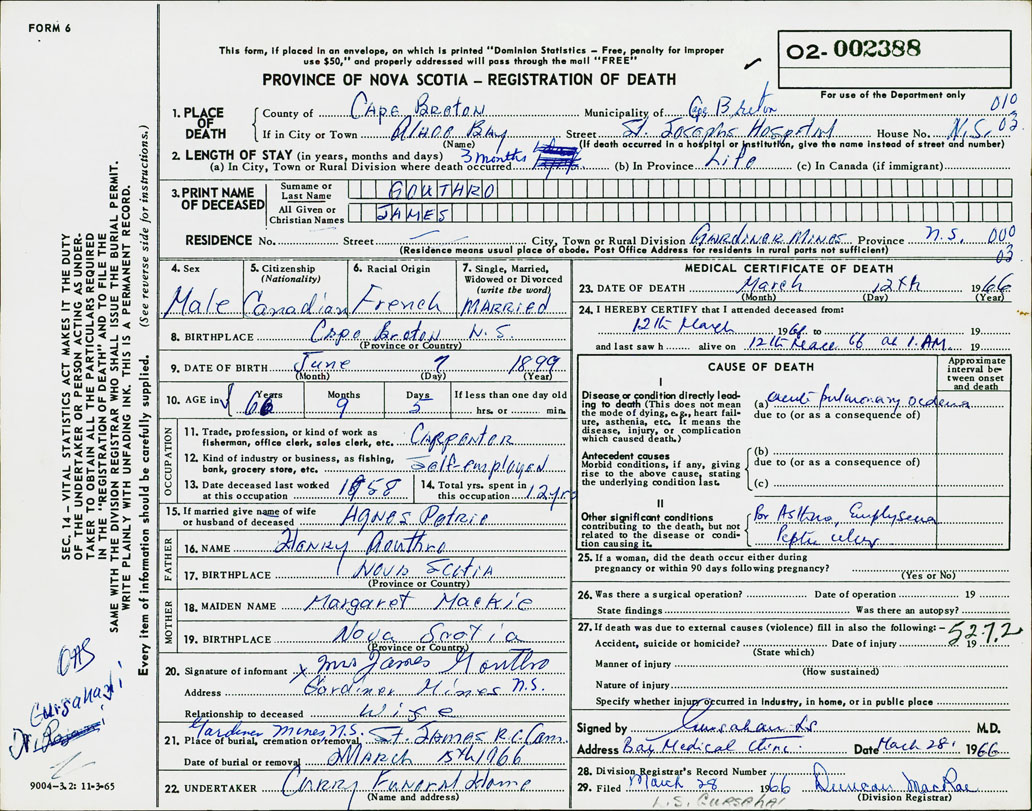 FORM 6
This form, if placed in an envelope, on which is printed "Dominion Statistics – Free, penalty for improper
use $50," and properly addressed will pass through the mail "FREE"
PROVINCE OF NOVA SCOTIA – REGISTRATION OF DEATH
02-002388
For use of the Department only
010
1. PLACE OF DEATH
County of Cape Breton Municipality of Cape Breton
If in City or Town Street St. Josephs Hospital House No. N.S. 03
(Name) (If death occurred in a hospital or institution, give the name instead of street and number)
2. LENGTH OF STAY (in years, months and days)
(a) In City, Town or Rural Division where death occurred 3 months (b) In Province Life (c) In Canada (if immigrant)
3. PRINT NAME OF DECEASED
Surname or Last Name GOUTHRO
All Given or Christian Names JAMES
RESIDENCE No. Street City, Town or Rural Division GARDINER MINES Province N.S. 000
(Residence means usual place of abode. Post Office Address for residents in rural parts not sufficient)
03
4. Sex Male
5. Citizenship (Nationality) Canadian
6. Racial Origin French
7. Single, Married, Widowed or Divorced (write the word) MARRIED
8. BIRTHPLACE Cape Breton N.S.
(Province or Country)
9. DATE OF BIRTH June 7 1899
(Month) (Day) (Year)
10. AGE in Years 66 Months 9 Days 5 If less than one day old hrs. or min.
OCCUPATION
11. Trade, profession, or kind of work as fisherman, office clerk, sales clerk, etc. Carpenter
12. Kind of industry or business, as fishing, bank, grocery store, etc. Self-employed
13. Date deceased last worked at this occupation 1958
14. Total yrs. spent in this occupation 12 yrs
15. If married give name of wife or husband of deceased Agnes Petrie
FATHER
16. NAME Henry Gouthro
17. BIRTHPLACE Nova Scotia
(Province or Country)
MOTHER
18. MAIDEN NAME Margaret Mackie
19. BIRTHPLACE Nova Scotia
(Province or Country)
20. Signature of informant x Mrs James Gouthro
Address Gardiner Mines N.S.
Relationship to deceased Wife
Gardiner Mines N.S.
21. Place of burial, cremation or removal St. James R.C. Cem
Date of burial or removal MARCH 15th 1966
22. UNDERTAKER Curry Funeral Home
(Name and address)
MEDICAL CERTIFICATE OF DEATH
23. DATE OF DEATH March 12th 1966
(Month) (Day) (Year)
24. I HEREBY CERTIFY that I attended deceased from:
12th March 1966 to 19
and last saw h alive on 12th 66 at 1 AM 19
CAUSE OF DEATH
Approximate interval between onset and death
I
Disease or condition directly leading to death (This does not mean the mode of dying, e.g., heart failure, asthenia, etc. It means the disease, injury, or complication which caused death.)
(a) acute pulmonary oedema
due to (or as a consequence of)
Antecedent causes
Morbid conditions, if any, giving rise to the above cause, stating the underlying condition last.
(b)
due to (or as a consequence of)
(c)
II
Other significant conditions contributing to the death, but not related to the disease or condition causing it.
Br Asthma, Emphysema
Peptic ulcer
25. If a woman, did the death occur either during
pregnancy or within 90 days following pregnancy?
(Yes or No)
26. Was there a surgical operation? Date of operation 19
State findings Was there an autopsy?
27. If death was due to external causes (violence) fill in also the following: – 527.2
Accident, suicide or homicide? Date of injury 19
(State which)
Manner of injury
(How sustained)
Nature of injury
Specify whether injury occurred in Industry, in home, or in public place
Signed by Gursahani LS M.D.
Address Bay Medical Clinic. Date March 28, 1966
28. Division Registrar's Record Number
29. Filed March 28 1966 Duncan MacRae
(Division Registrar)
L.S. GURSAHANI
SEC. 14 – VITAL STATISTICS ACT MAKES IT THE DUTY
OF THE UNDERTAKER OR PERSON ACTING AS UNDER-
TAKER TO OBTAIN ALL THE PARTICULARS REQUIRED
IN THE "REGISTRATION OF DEATH" AND TO FILE THE
SAME WITH THE DIVISION REGISTRAR WHO SHALL ISSUE THE BURIAL PERMIT.
WRITE PLAINLY WITH UNFADING INK. THIS IS A PERMANENT RECORD.
Every item of information should be carefully supplied. (See reverse side for instructions.)
OAS
Gursahani
Dr.
9004-3.2: 11-3-65